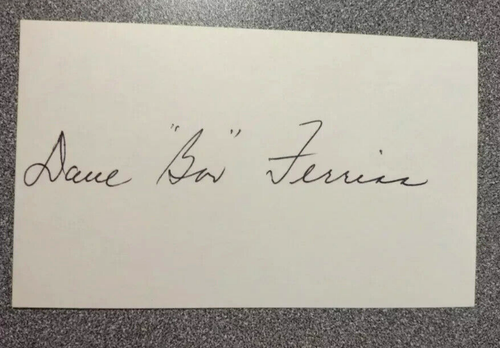 Dave "Boo" Ferriss